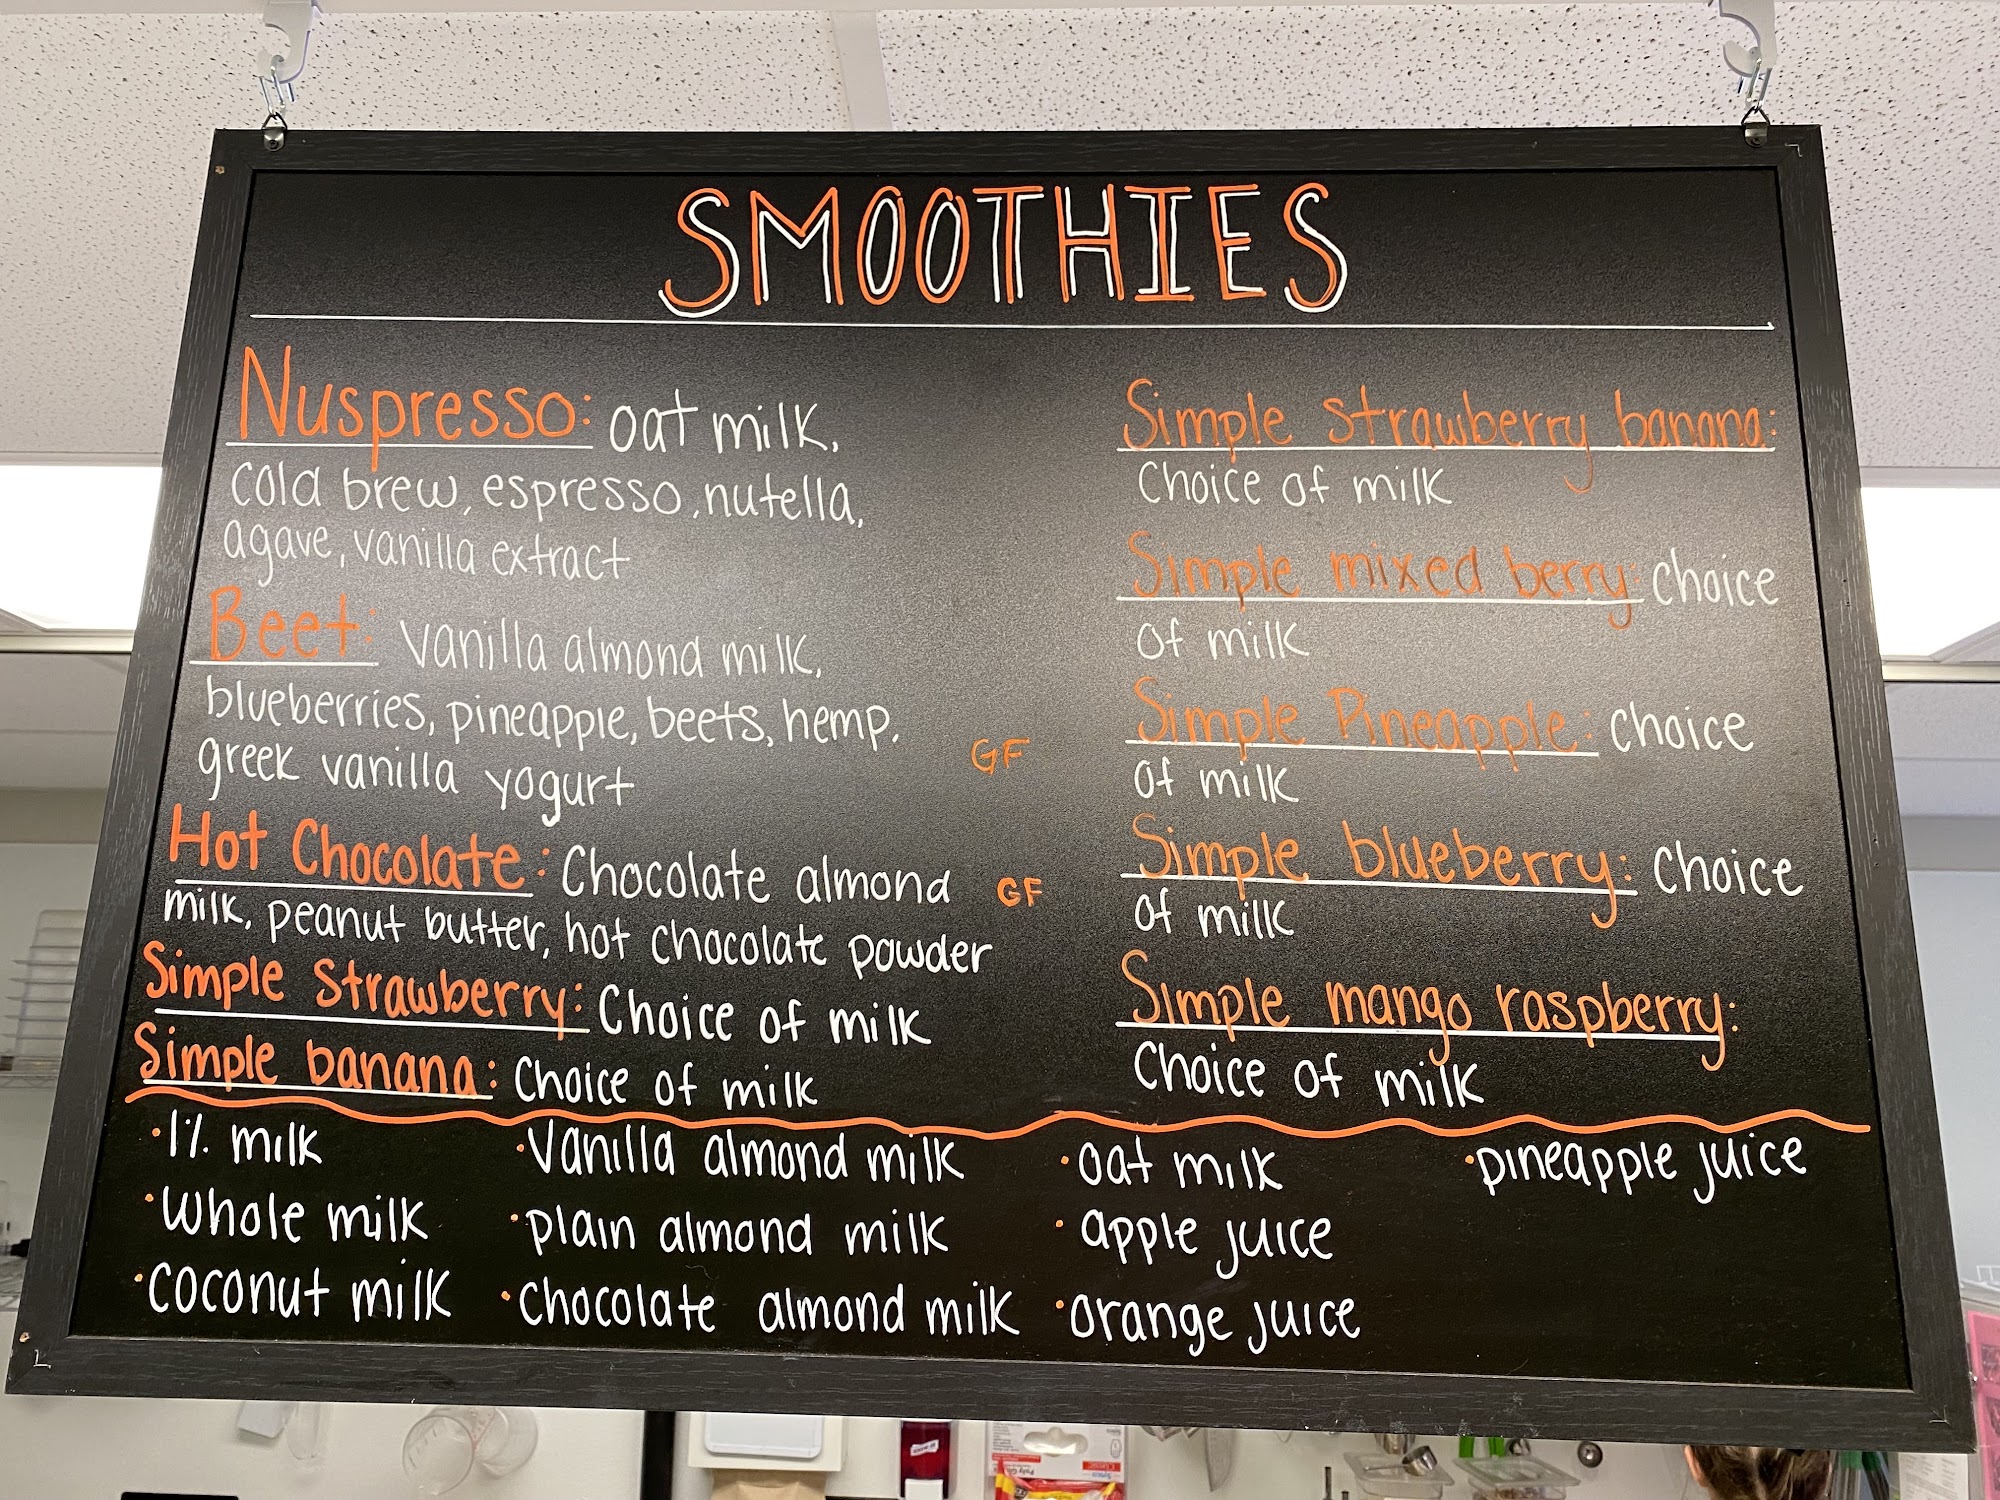 SMOOTHIES
Nuspresso: oat milk,
cold brew, espresso, nutella,
agave, vanilla extract
Beet: vanilla almond milk,
blueberries, pineapple, beets, hemp,
greek vanilla yogurt GF
Hot Chocolate: Chocolate almond GF
milk, peanut butter, hot chocolate powder
Simple Strawberry: Choice of milk
Simple banana: Choice of milk
Simple strawberry banana:
Choice of milk
Simple mixed berry: Choice
of milk
Simple Pineapple: Choice
of milk
Simple blueberry: Choice
of milk
Simple mango raspberry:
Choice of milk
·1% milk
·whole milk
·coconut milk
·vanilla almond milk
·plain almond milk
·chocolate almond milk
·oat milk
·apple juice
·orange juice
·pineapple juice